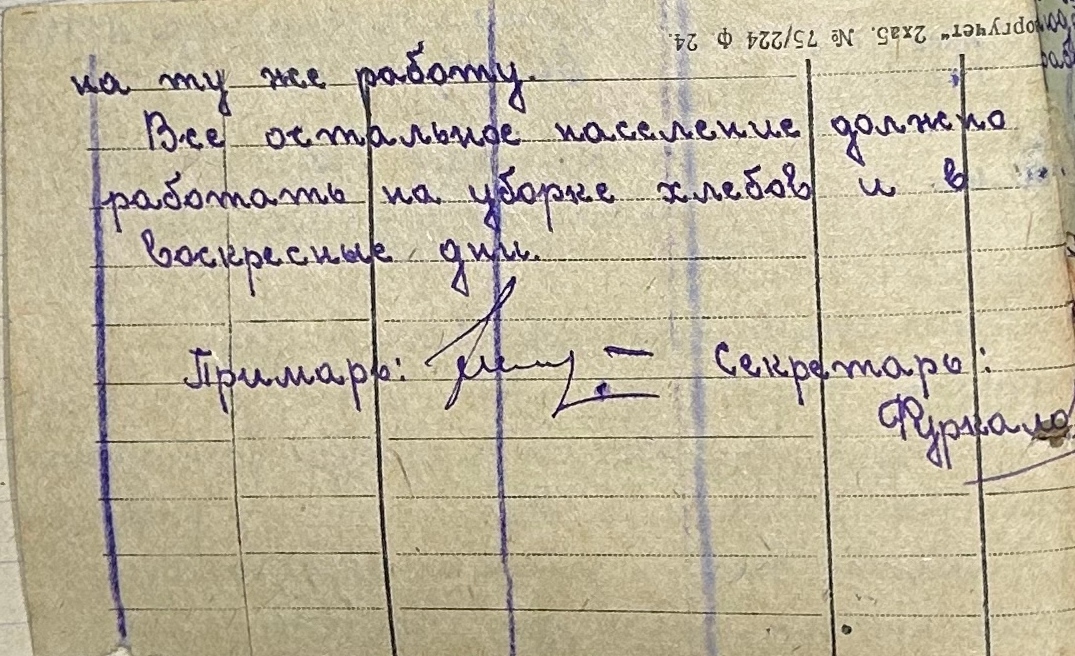 оргучет" 2хаб. № 75/224 Ф 24.
на ту же работу.
Все остальное население должно
работать на уборке хлебов и в
воскресные дни.
Примарь: Секретарь:
Фуркало